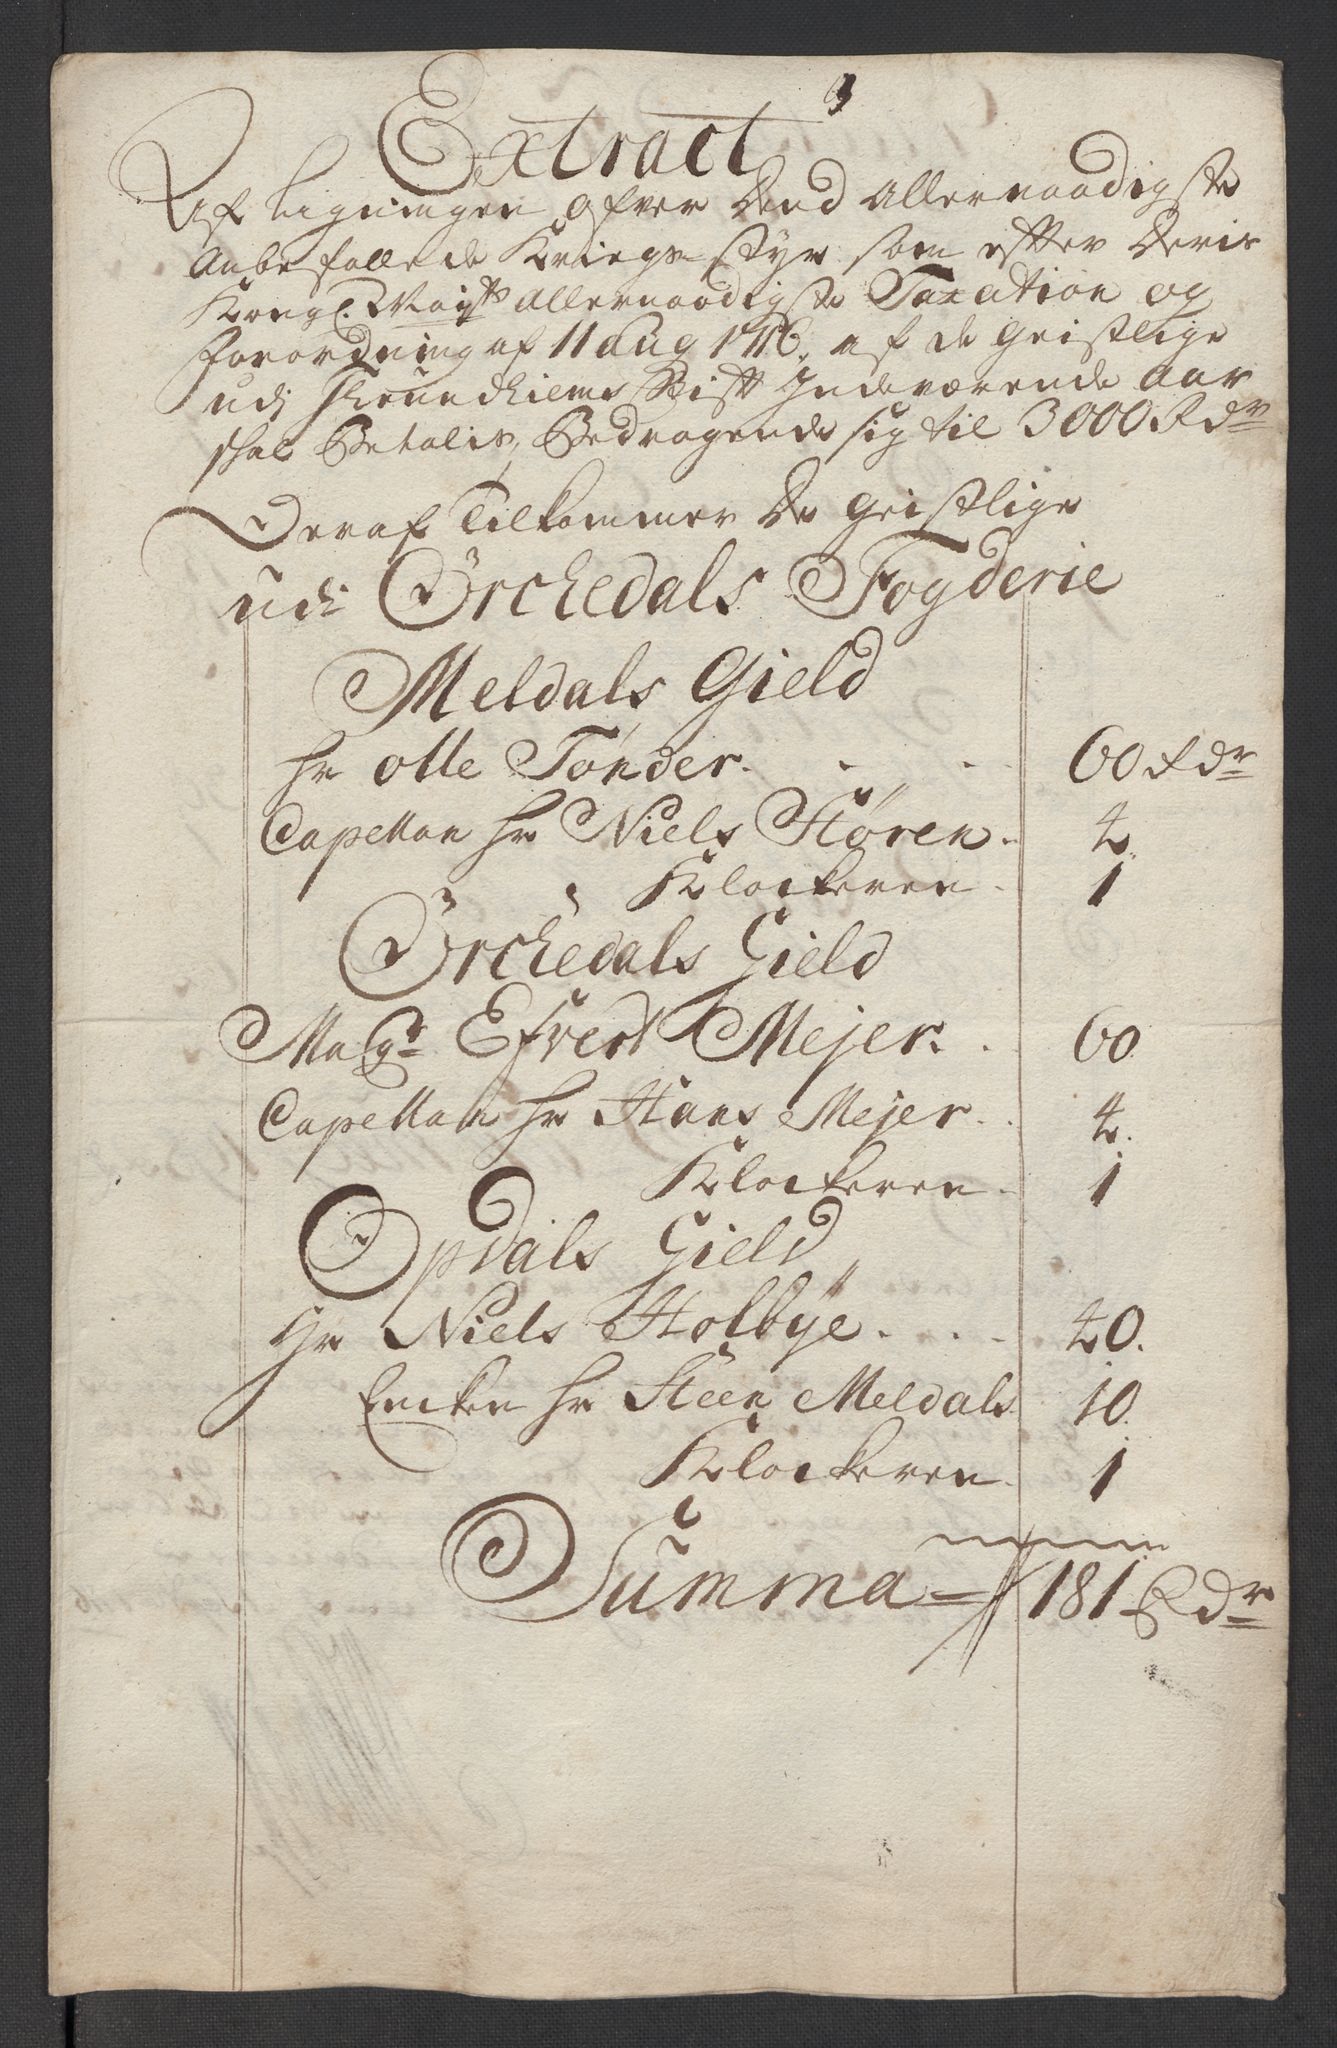 Extract
Af Ligningen ofver Dend Allernaadigste
Anbefallede Kriegs-styr som efter Deris
Kongl. Mayts Allernaadigste Taxation og
Forordning af 11 aug 1716, af de Geistlige
udi Throndhiems Stift Indeværende Aar
skal Betalis, Bedragende sig til 3000 Rdr
Deraf Tilkommer De Geistlige
udi Örchedals Fogderie
Meldals Gield
hr Otte Tønder. . . 60 Rdr
Capellan hr Niels Støren. 4
Klockeren. 1
Örchedals Gield
Magr Efvert Mejer. . 60
Capellan hr Hans Mejer. . 4.
Klockeren. 1
Opdals Gield
Hr Niels Holbye. . . 40.
Encken hr Steen Meldals 10.
Klockeren. 1
Summa = 181 Rdr